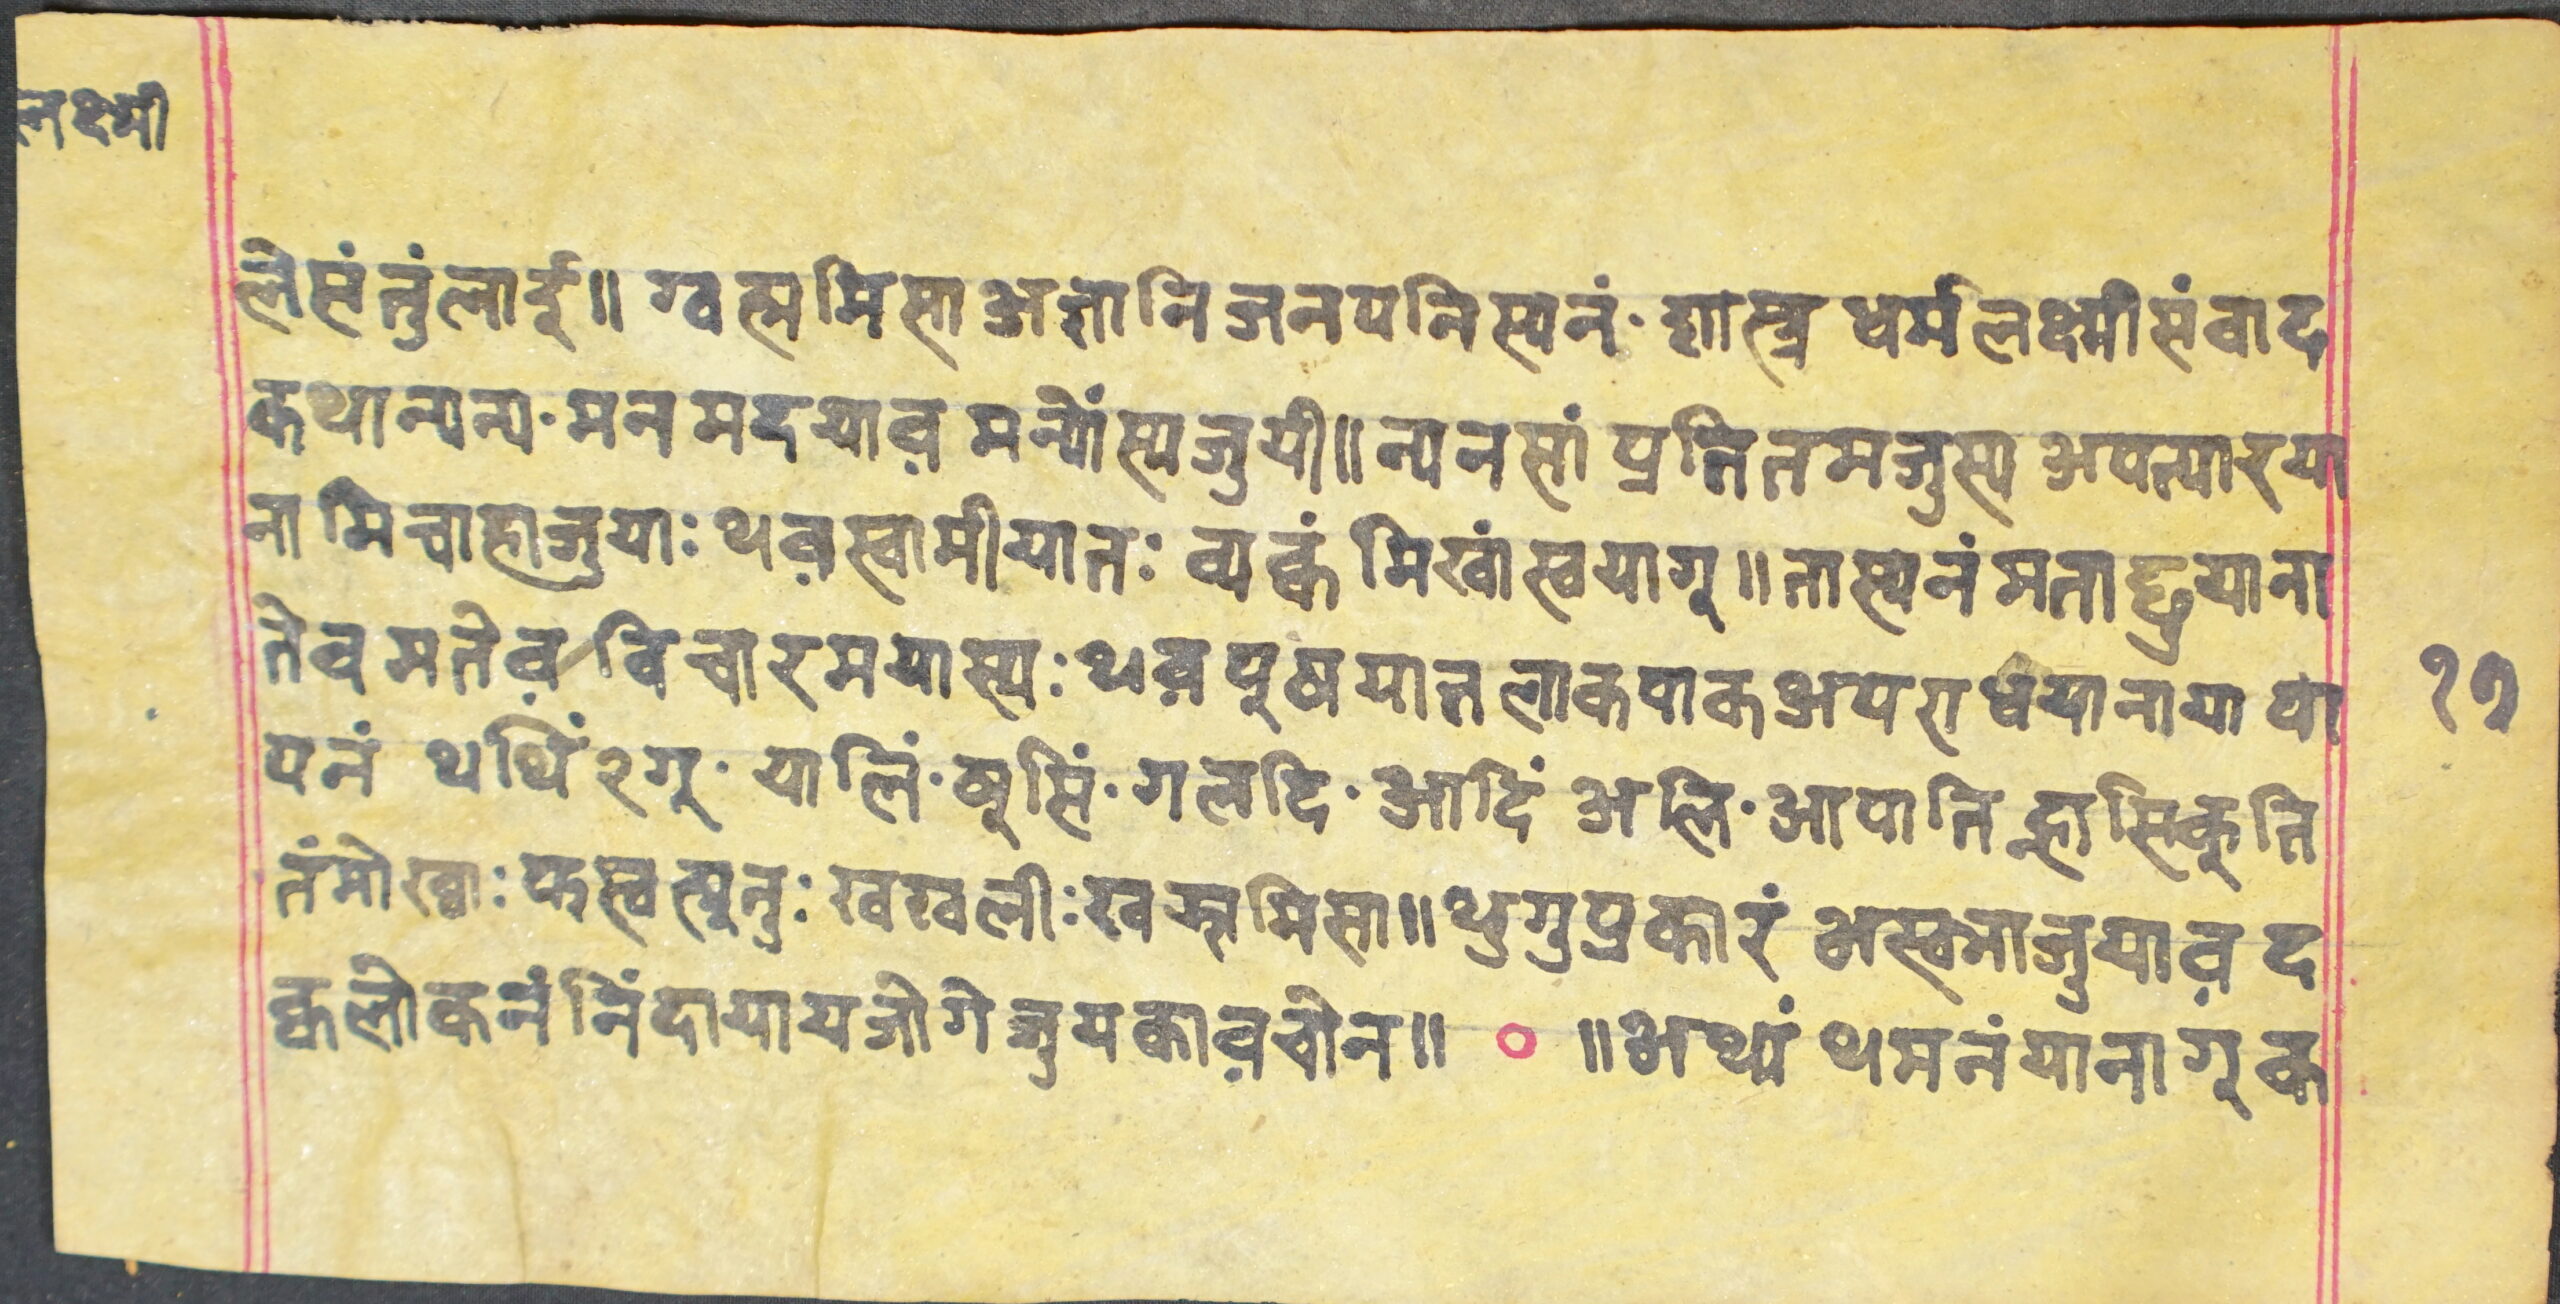 लक्ष्मी
लेसंतुंलाई॥ ग्वह्ममिसा अज्ञानि जनपनिस्यनं· शास्त्र धर्मलक्ष्मीसंवाद
कथान्यन्य· मन मदयाव़ मन्योंस्यजुयी॥ न्यनसां प्रतितमजुस्य अपत्यारया
नामिचाहाजुयाः थव़स्वामीयातः व्यक्कं मिखांस्वयागू॥ तास्यनं मताछुयाना
तेवमतेव़ विचारमयास्यः थव़पूषयात लाकपाक अपराधयानायापा
पनं थथिं२गू· यालिं· षूसिं· गलदि· आदिं अलि· आपाति ह्रासिकूति
तंमोख्वाः फस्वस्यूनुः खखलीः खह्ममिसा॥ थुगुप्रकारं अस्वमाजुयाव़ द
क्वलोकनं निंदायायजोगे जुयकाव़चोन॥ ० ॥ अथ्यं थमनंयानागू क
१७